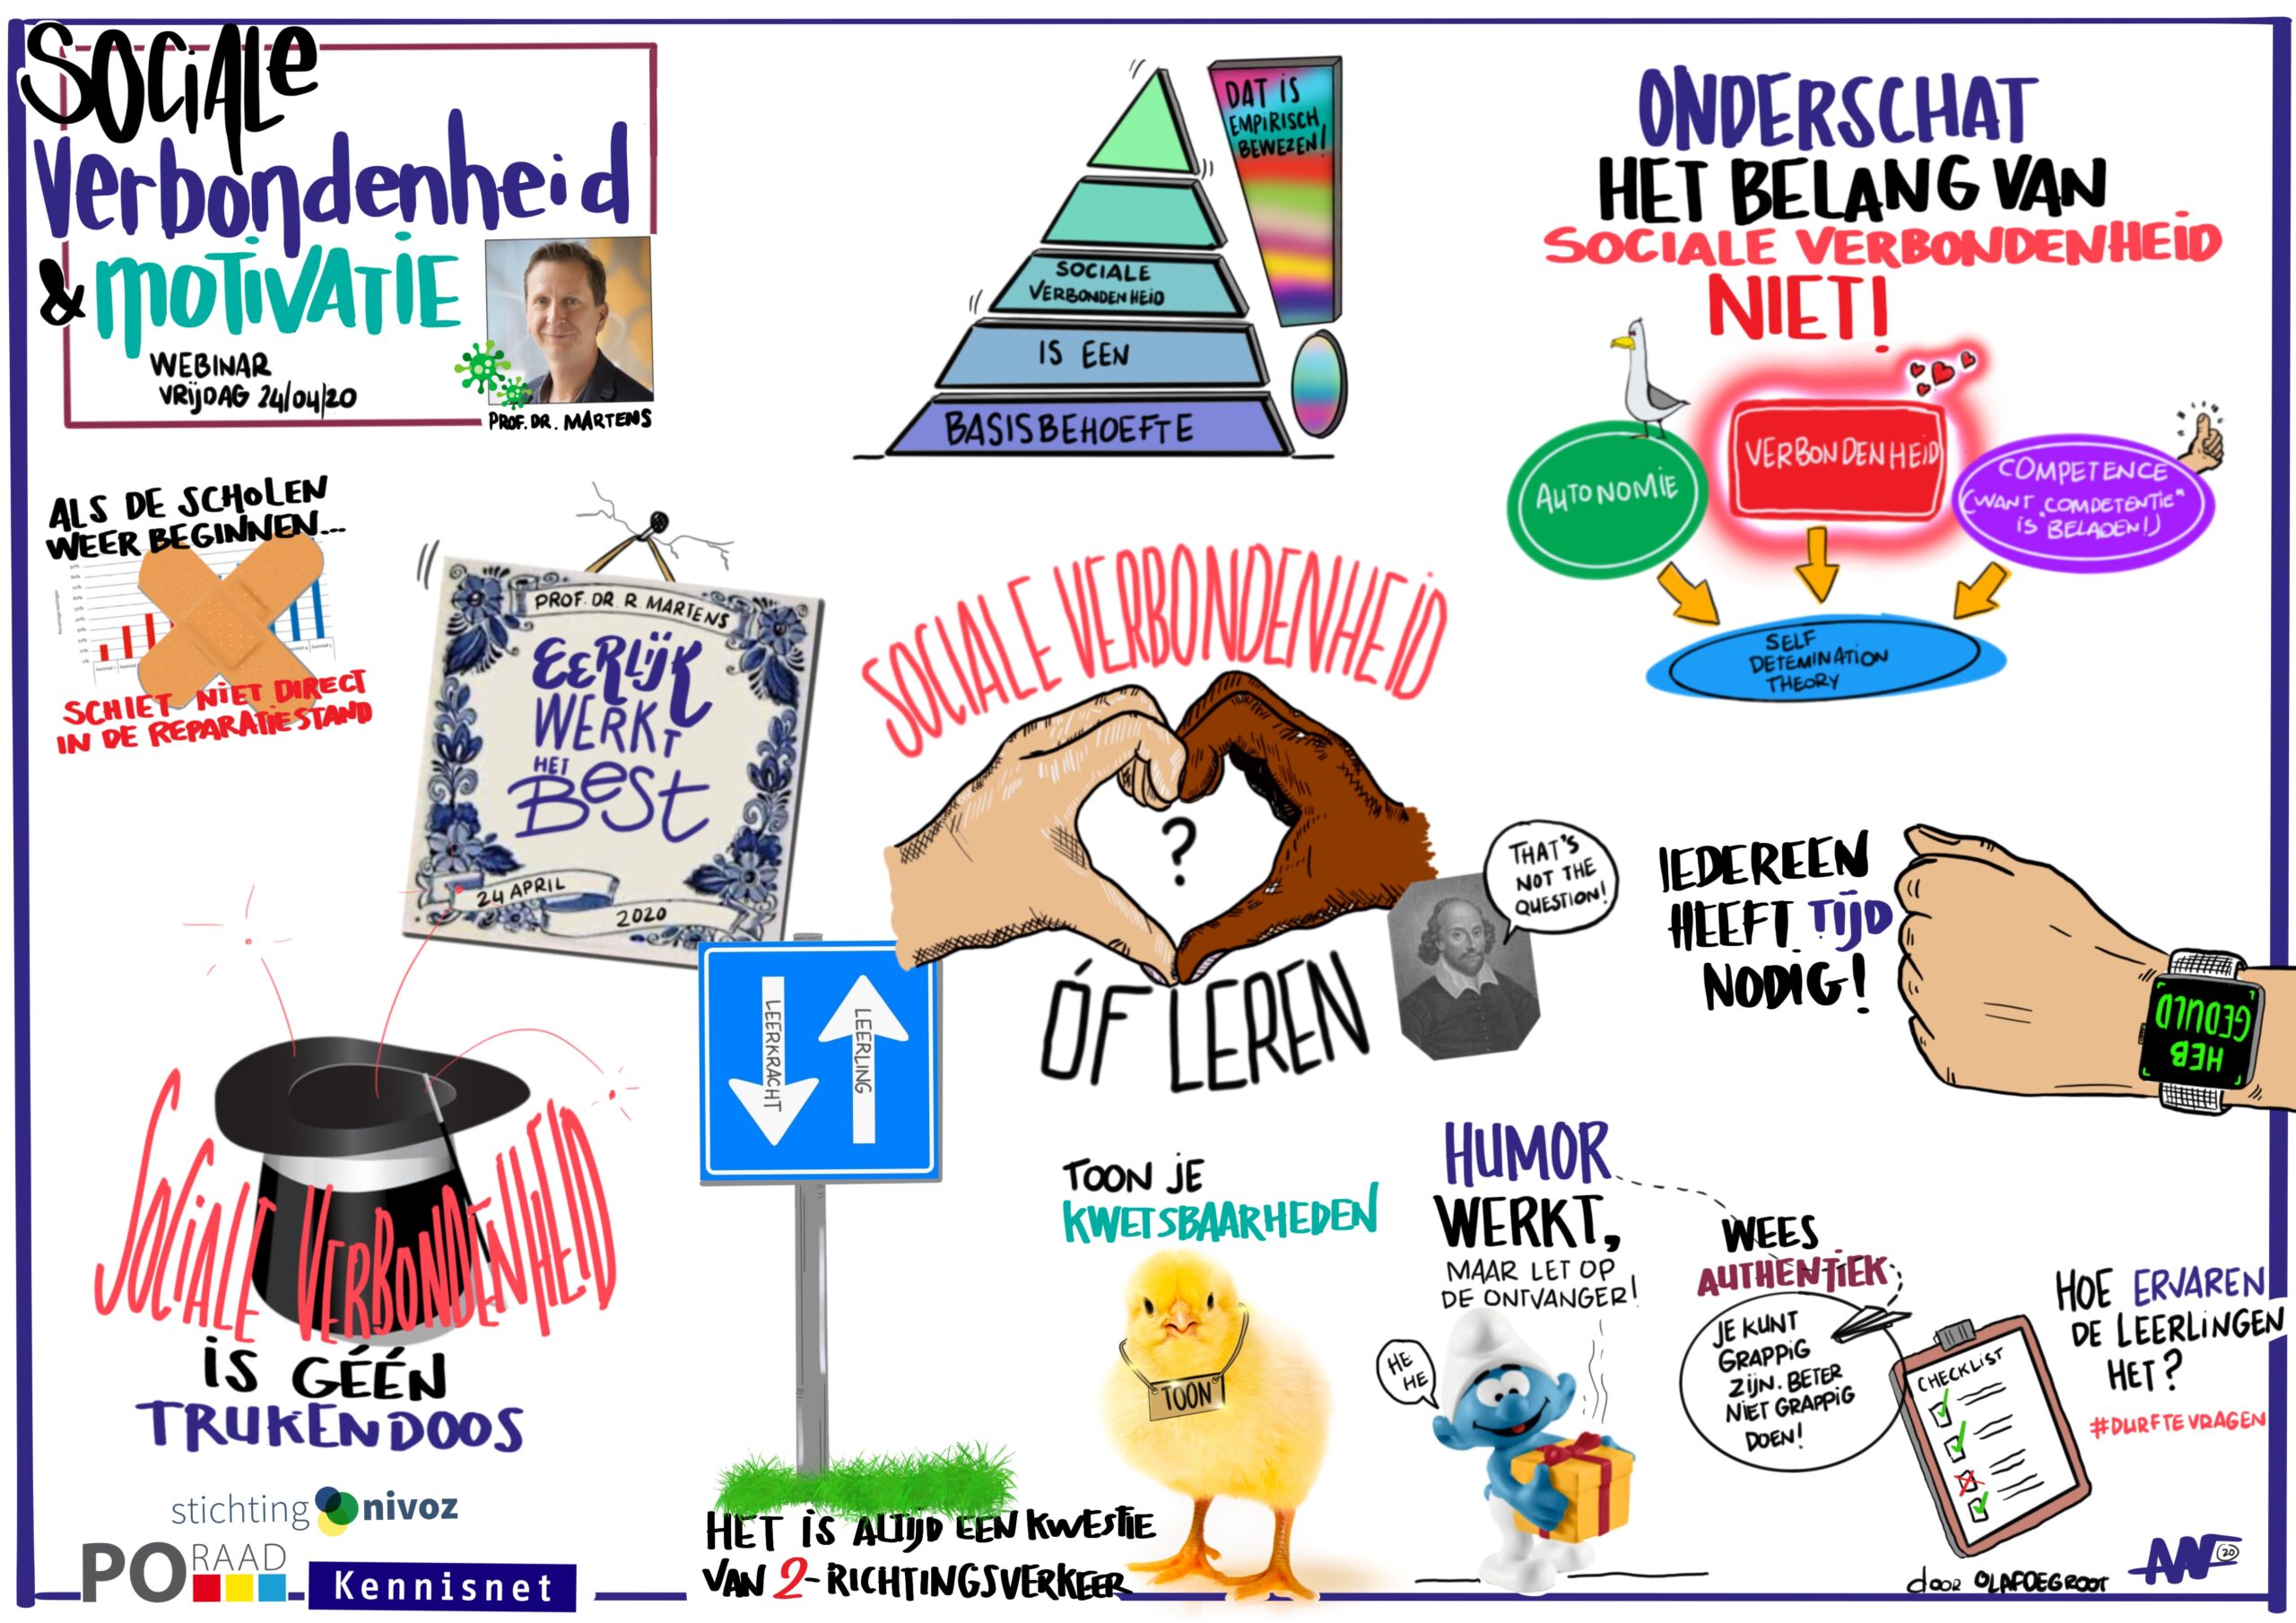 SOCIALE
VERBONDENHEID
& MOTIVATIE
WEBINAR
VRIJDAG 24/04/20
PROF. DR. MARTENS
SOCIALE
VERBONDENHEID
IS EEN
BASISBEHOEFTE
DAT IS
EMPIRISCH
BEWEZEN!
ONDERSCHAT
HET BELANG VAN
SOCIALE VERBONDENHEID
NIET!
AUTONOMIE
VERBONDENHEID
COMPETENCE
(WANT "COMPETENTIE"
IS "BELADEN!)
SELF
DETEMINATION
THEORY
ALS DE SCHOLEN
WEER BEGINNEN...
SCHIET NIET DIRECT
IN DE REPARATIESTAND
PROF. DR. R. MARTENS
EERLIJK
WERKT
HET
BEST
24 APRIL
2020
SOCIALE VERBONDENHEID
?
ÓF LEREN
THAT'S
NOT THE
QUESTION!
IEDEREEN
HEEFT TIJD
NODIG!
HEB
GEDULD
SOCIALE VERBONDENHEID
IS GÉÉN
TRUKENDOOS
LEERKRACHT
LEERLING
HET IS ALTIJD EEN KWESTIE
VAN 2-RICHTINGSVERKEER
TOON JE
KWETSBAARHEDEN
TOON
HUMOR
WERKT,
MAAR LET OP
DE ONTVANGER!
HE
HE
WEES
AUTHENTIEK
JE KUNT
GRAPPIG
ZIJN. BETER
NIET GRAPPIG
DOEN!
CHECKLIST
HOE ERVAREN
DE LEERLINGEN
HET?
#DURFTEVRAGEN
stichting nivoz
PO RAAD
Kennisnet
door OLAFDEGROOT
AW 20